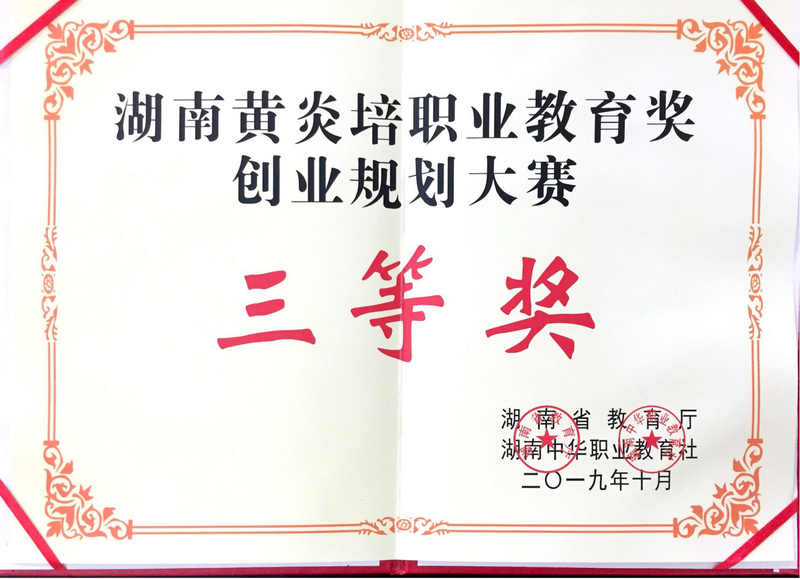 湖南黄炎培职业教育奖
创业规划大赛
三等奖
湖南省教育厅
湖南中华职业教育社
二〇一九年十月